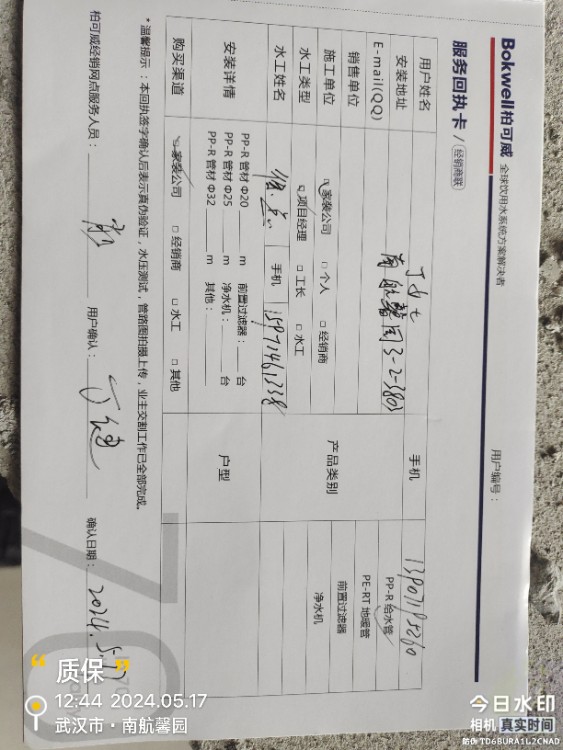 Bokwell柏可威 全球饮用水系统方案解决者
服务回执卡 / 经销商联
用户编号：
用户姓名 丁女士 手机
安装地址 南航馨园3-2-3803
E-mail(QQ)
销售单位
施工单位 家装公司 □ 个人 □ 经销商
产品类别 PP-R 给水管
PE-RT 地暖管
前置过滤器
净水机
水工类型 项目经理 □ 工长 □ 水工
水工姓名 手机 15971461338
安装详情 PP-R 管材 Φ20 m 前置过滤器： 台
PP-R 管材 Φ25 m 净水机： 台
PP-R 管材 Φ32 m 其他：
户型
购买渠道 家装公司 □ 经销商 □ 水工 □ 其他
*温馨提示：本回执签字确认后表示真伪验证，水压测试，管路图拍摄上传，业主交割工作已全部完成。
柏可威经销网点服务人员： 用户确认： 确认日期： 2024.5.17
质保
12:44 2024.05.17
武汉市·南航馨园
今日水印
相机 真实时间
防伪 TD6BURA1L2CNAD